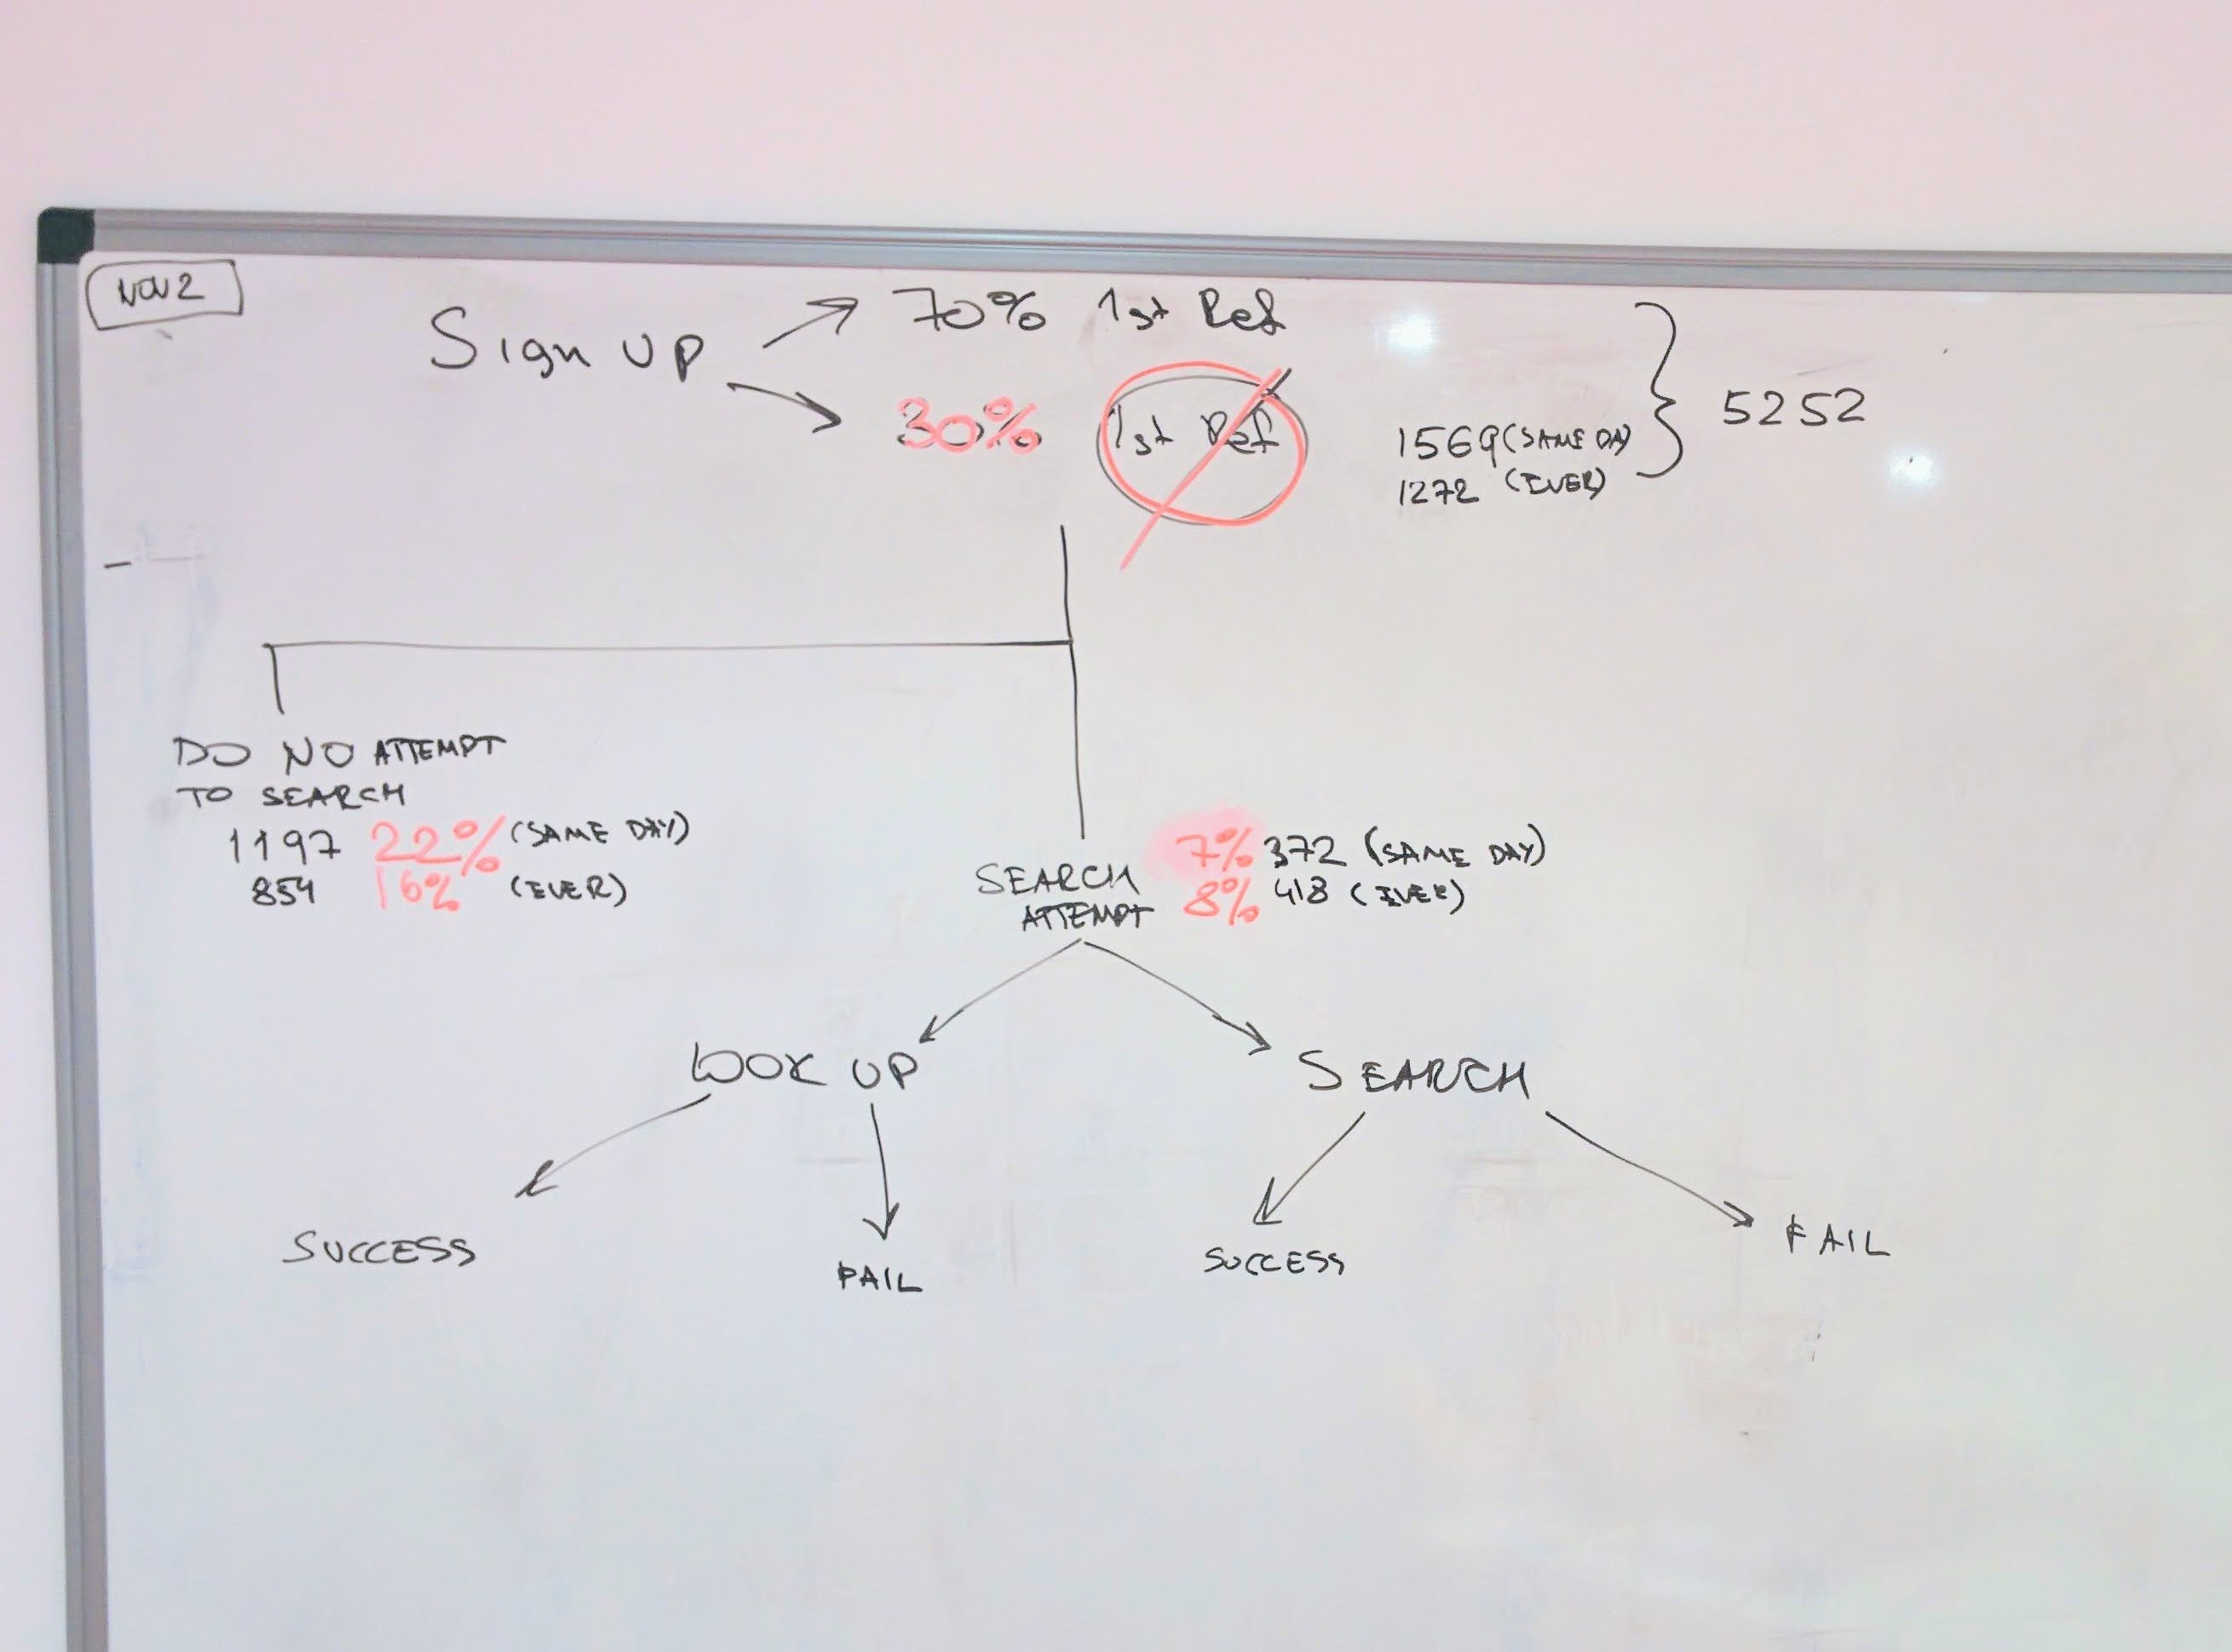 NOV 2
Sign UP
70% 1st Ref
30% 1st Ref
1569 (SAME DAY)
1272 (EVER)
5252
DO NO ATTEMPT
TO SEARCH
1197 22% (SAME DAY)
854 16% (EVER)
SEARCH
ATTEMPT
7% 372 (SAME DAY)
8% 418 (EVER)
LOOK UP
SEARCH
SUCCESS
FAIL
SUCCESS
FAIL